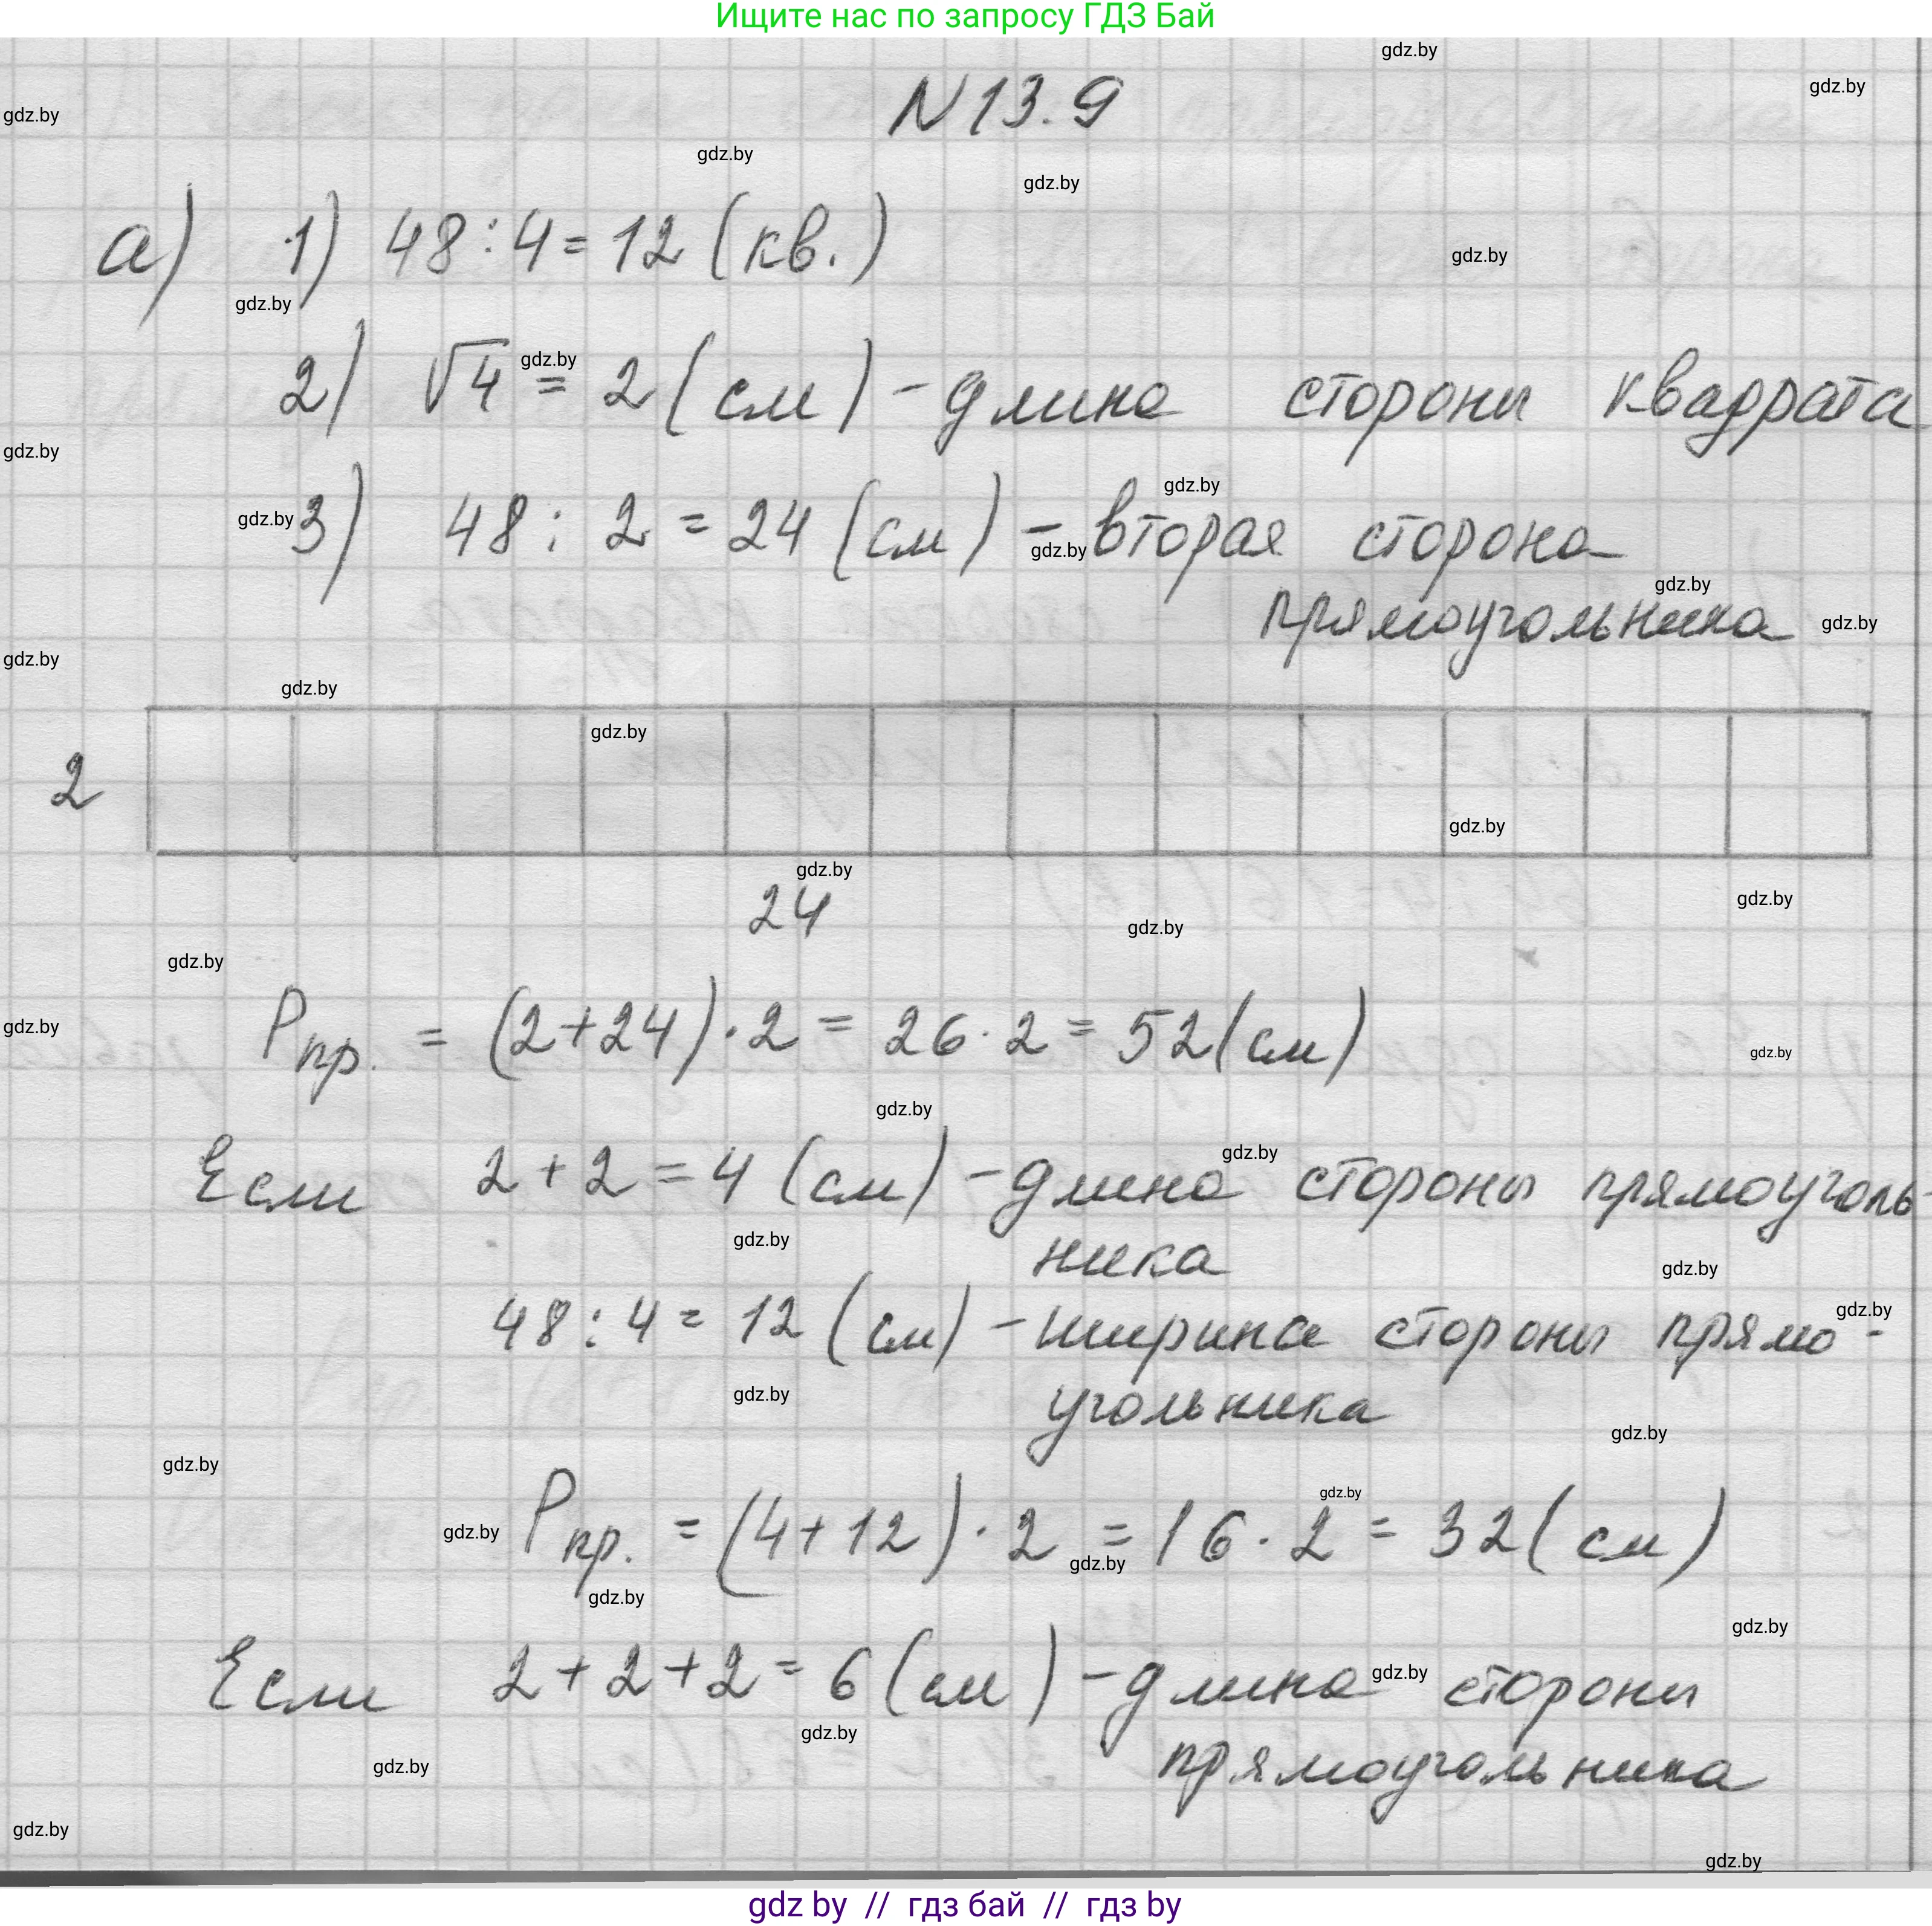 Ищите нас по запросу ГДЗ Бай
N 13.9
а) 1) 48 : 4 = 12 (кв.)
2) √4 = 2 (см) - длина стороны квадрата
3) 48 : 2 = 24 (см) - вторая сторона
прямоугольника
2
24
Pпр. = (2+24)·2 = 26·2 = 52 (см)
Если 2+2=4 (см) - длина стороны прямоуголь-
ника
48 : 4 = 12 (см) - ширина стороны прямо-
угольника
Pпр. = (4+12)·2 = 16·2 = 32 (см)
Если 2+2+2=6 (см) - длина стороны
прямоугольника
gdz by // гдз бай // гдз by